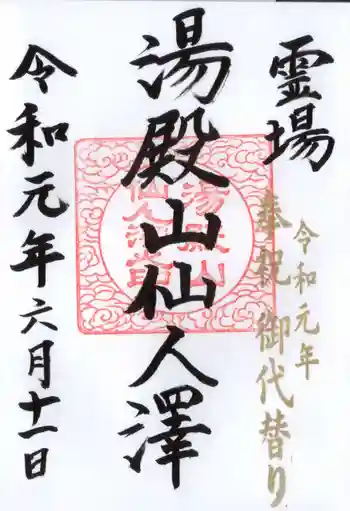 霊場
令和元年
奉祝 御代替り
湯殿山仙人澤
湯殿山
仙人澤
令和元年六月十一日